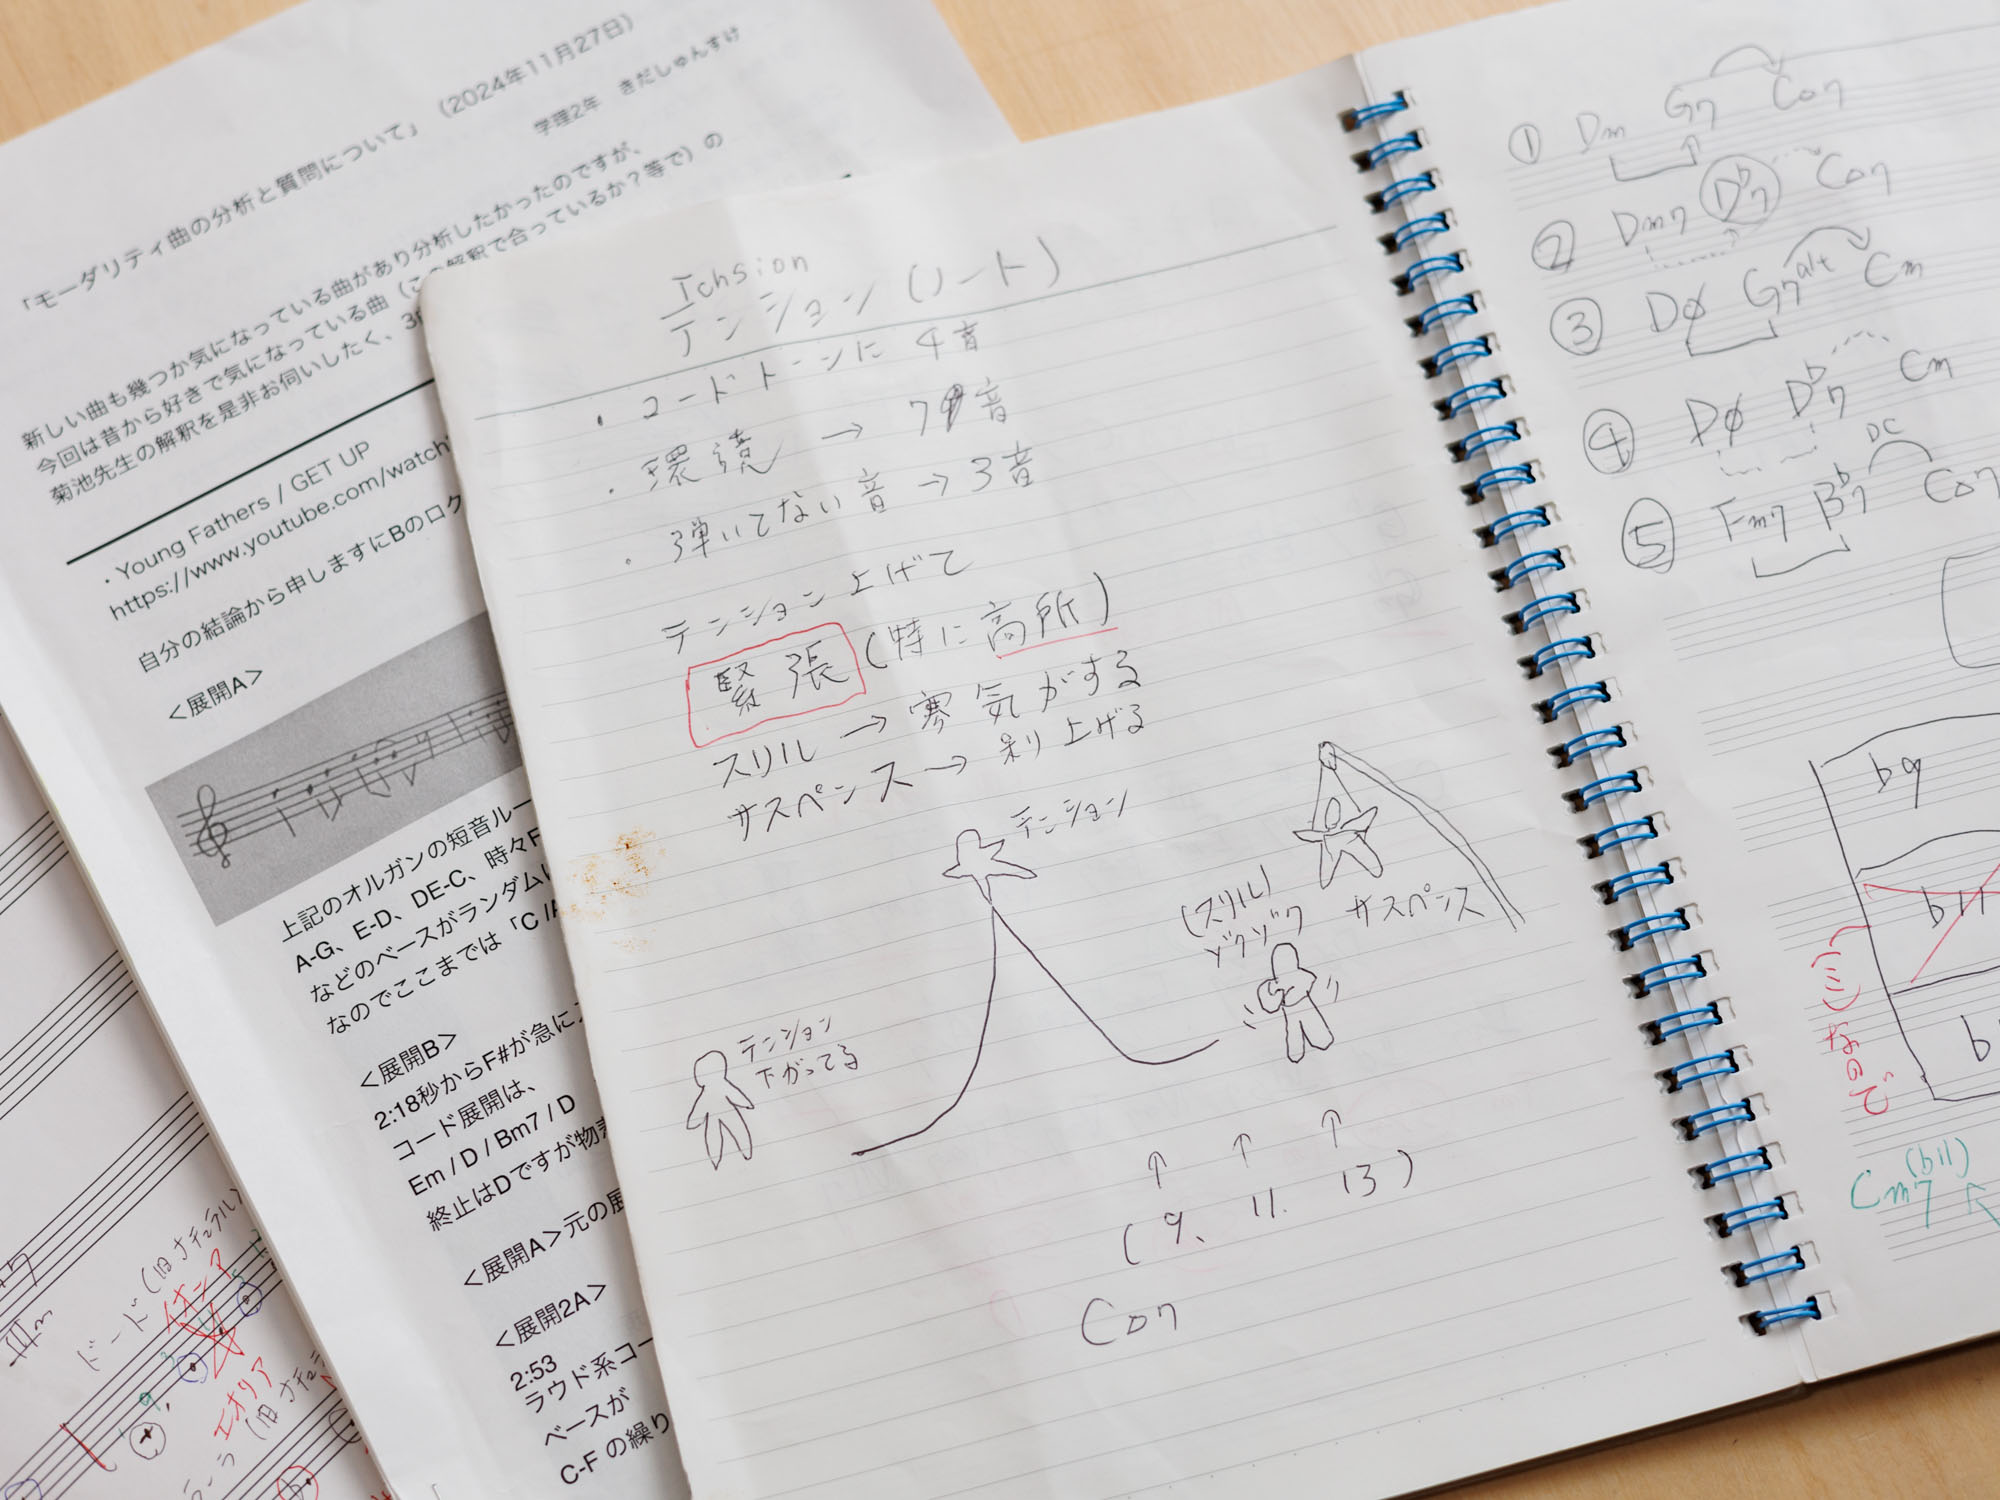 「モーダリティ曲の分析と質問について」（2024年11月27日）
学理2年　きだしゅんすけ
新しい曲も幾つか気になっている曲があり分析したかったのですが、
今回は昔から好きで気になっている曲（この解釈で合っているか？等で）の
菊池先生の解釈を是非お伺いしたく、3
・Young Fathers / GET UP
https://www.youtube.com/watch
自分の結論から申しますにBのロク
＜展開A＞
上記のオルガンの短音ルー
A-G、E-D、DE-C、時々F
などのベースがランダムに
なのでここまでは「C /A
＜展開B＞
2:18秒からF#が急に
コード展開は、
Em / D / Bm7 / D
終止はDですが物
＜展開A＞元の展
＜展開2A＞
2:53
ラウド系コー
ベースが
C-F の繰り
Tension
テンション(ノート)
・コードトーンに 4音
・環境 → 7音
・弾いてない音 → 3音
テンション上げて
緊張(特に高所)
スリル → 寒気がする
サスペンス → 吊り上げる
テンション
サスペンス
(スリル)
ゾクゾク
テンション
下がってる
↑ ↑ ↑
(9、11. 13)
C△7
① Dm G7 C△7
② Dm7 D♭7 C△7
③ Dø G7alt Cm
④ Dø D♭7 Cm
DC
⑤ Fm7 B♭7 C△7
b9
b11
(ミ)なので
Cm7(b11)
IIIm
ドード(旧ナチュラル)
イオニア
エオリア